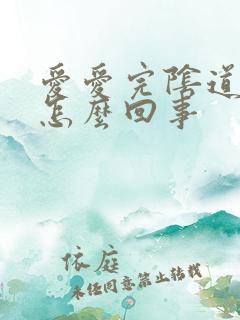 愛愛完陰道
怎麼回事
依庭
未经同意禁止转载